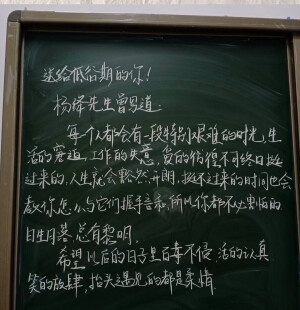 送给低谷期的你!
杨绛先生曾写道:
每个人都会有一段特别艰难的时光,生
活的窘迫,工作的失意,爱的彷徨不可终日,挺
过来的,人生就会豁然开朗,挺不过来的时间也会
教你怎么与它们握手言和,所以你都不必害怕的
日生月落,总有黎明.
希望以后的日子里百毒不侵,活的认真
笑的放肆,抬头遇见的都是柔情.